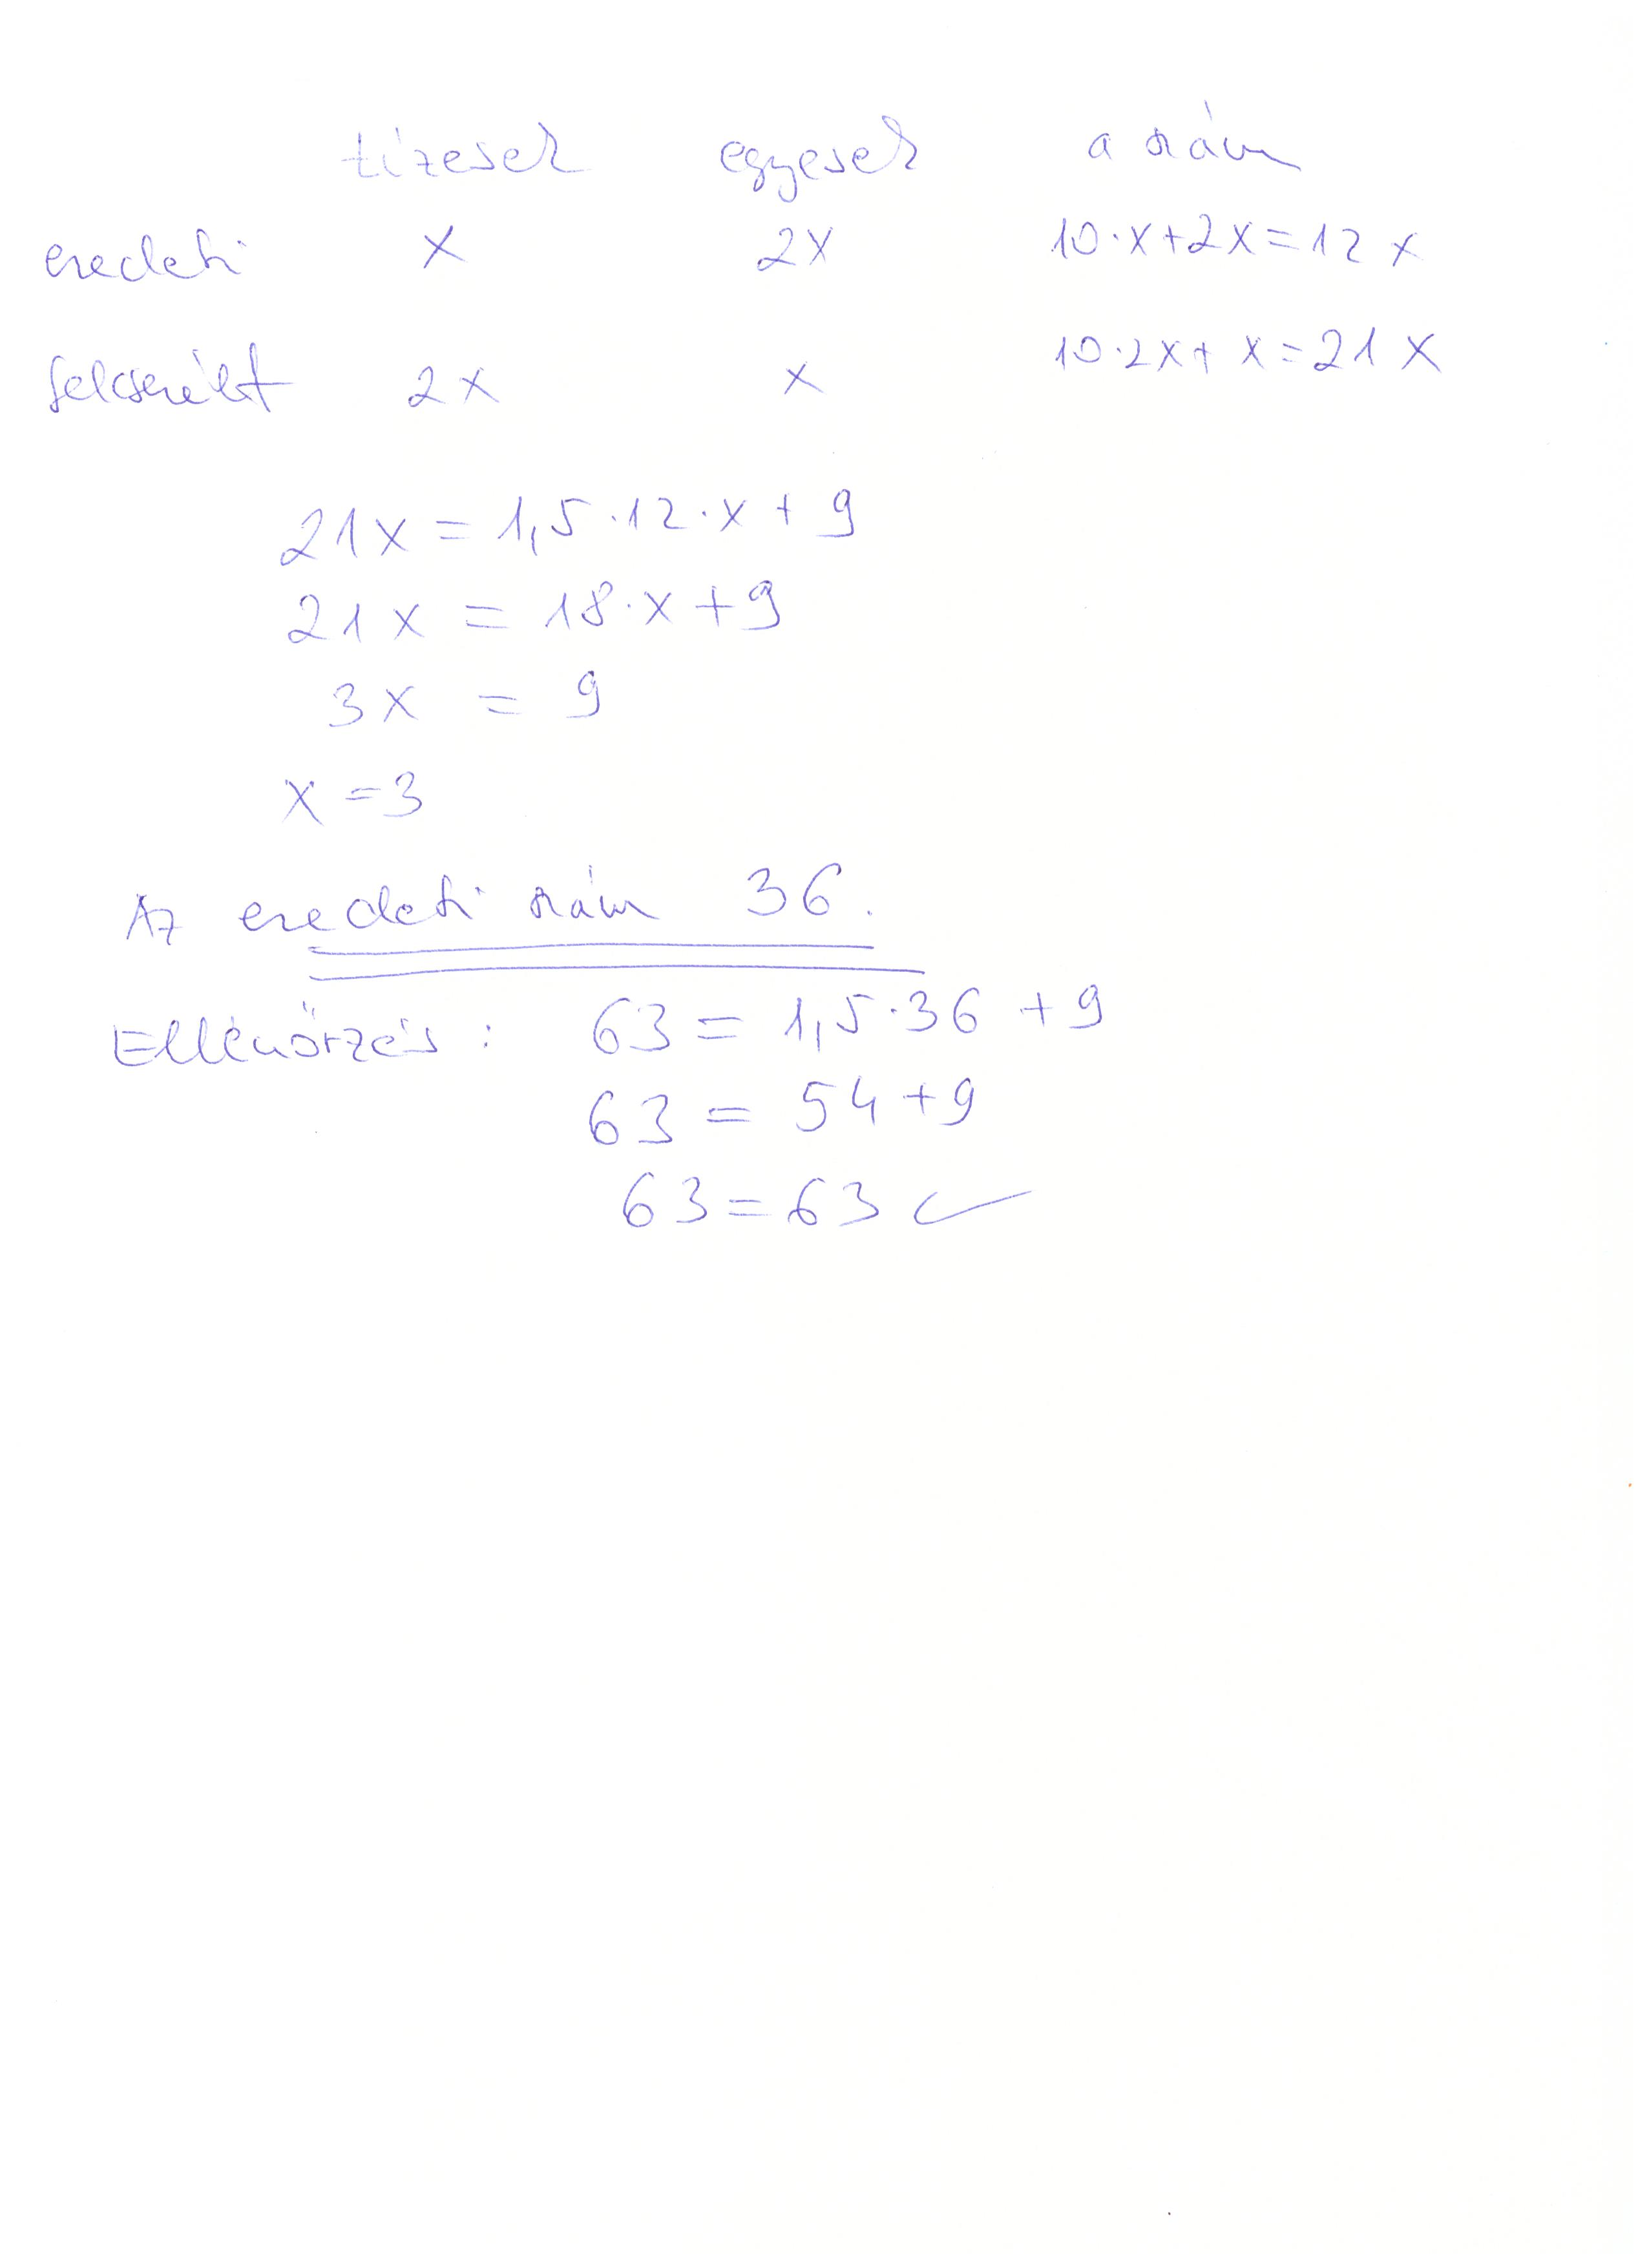 tízesek egyesek a szám
eredeti x 2x 10·x+2x=12x
felcserélt 2x x 10·2x+x=21x
21x=1,5·12·x+9
21x=18·x+9
3x=9
x=3
Az eredeti szám 36.
Ellenőrzés: 63=1,5·36+9
63=54+9
63=63 ✓